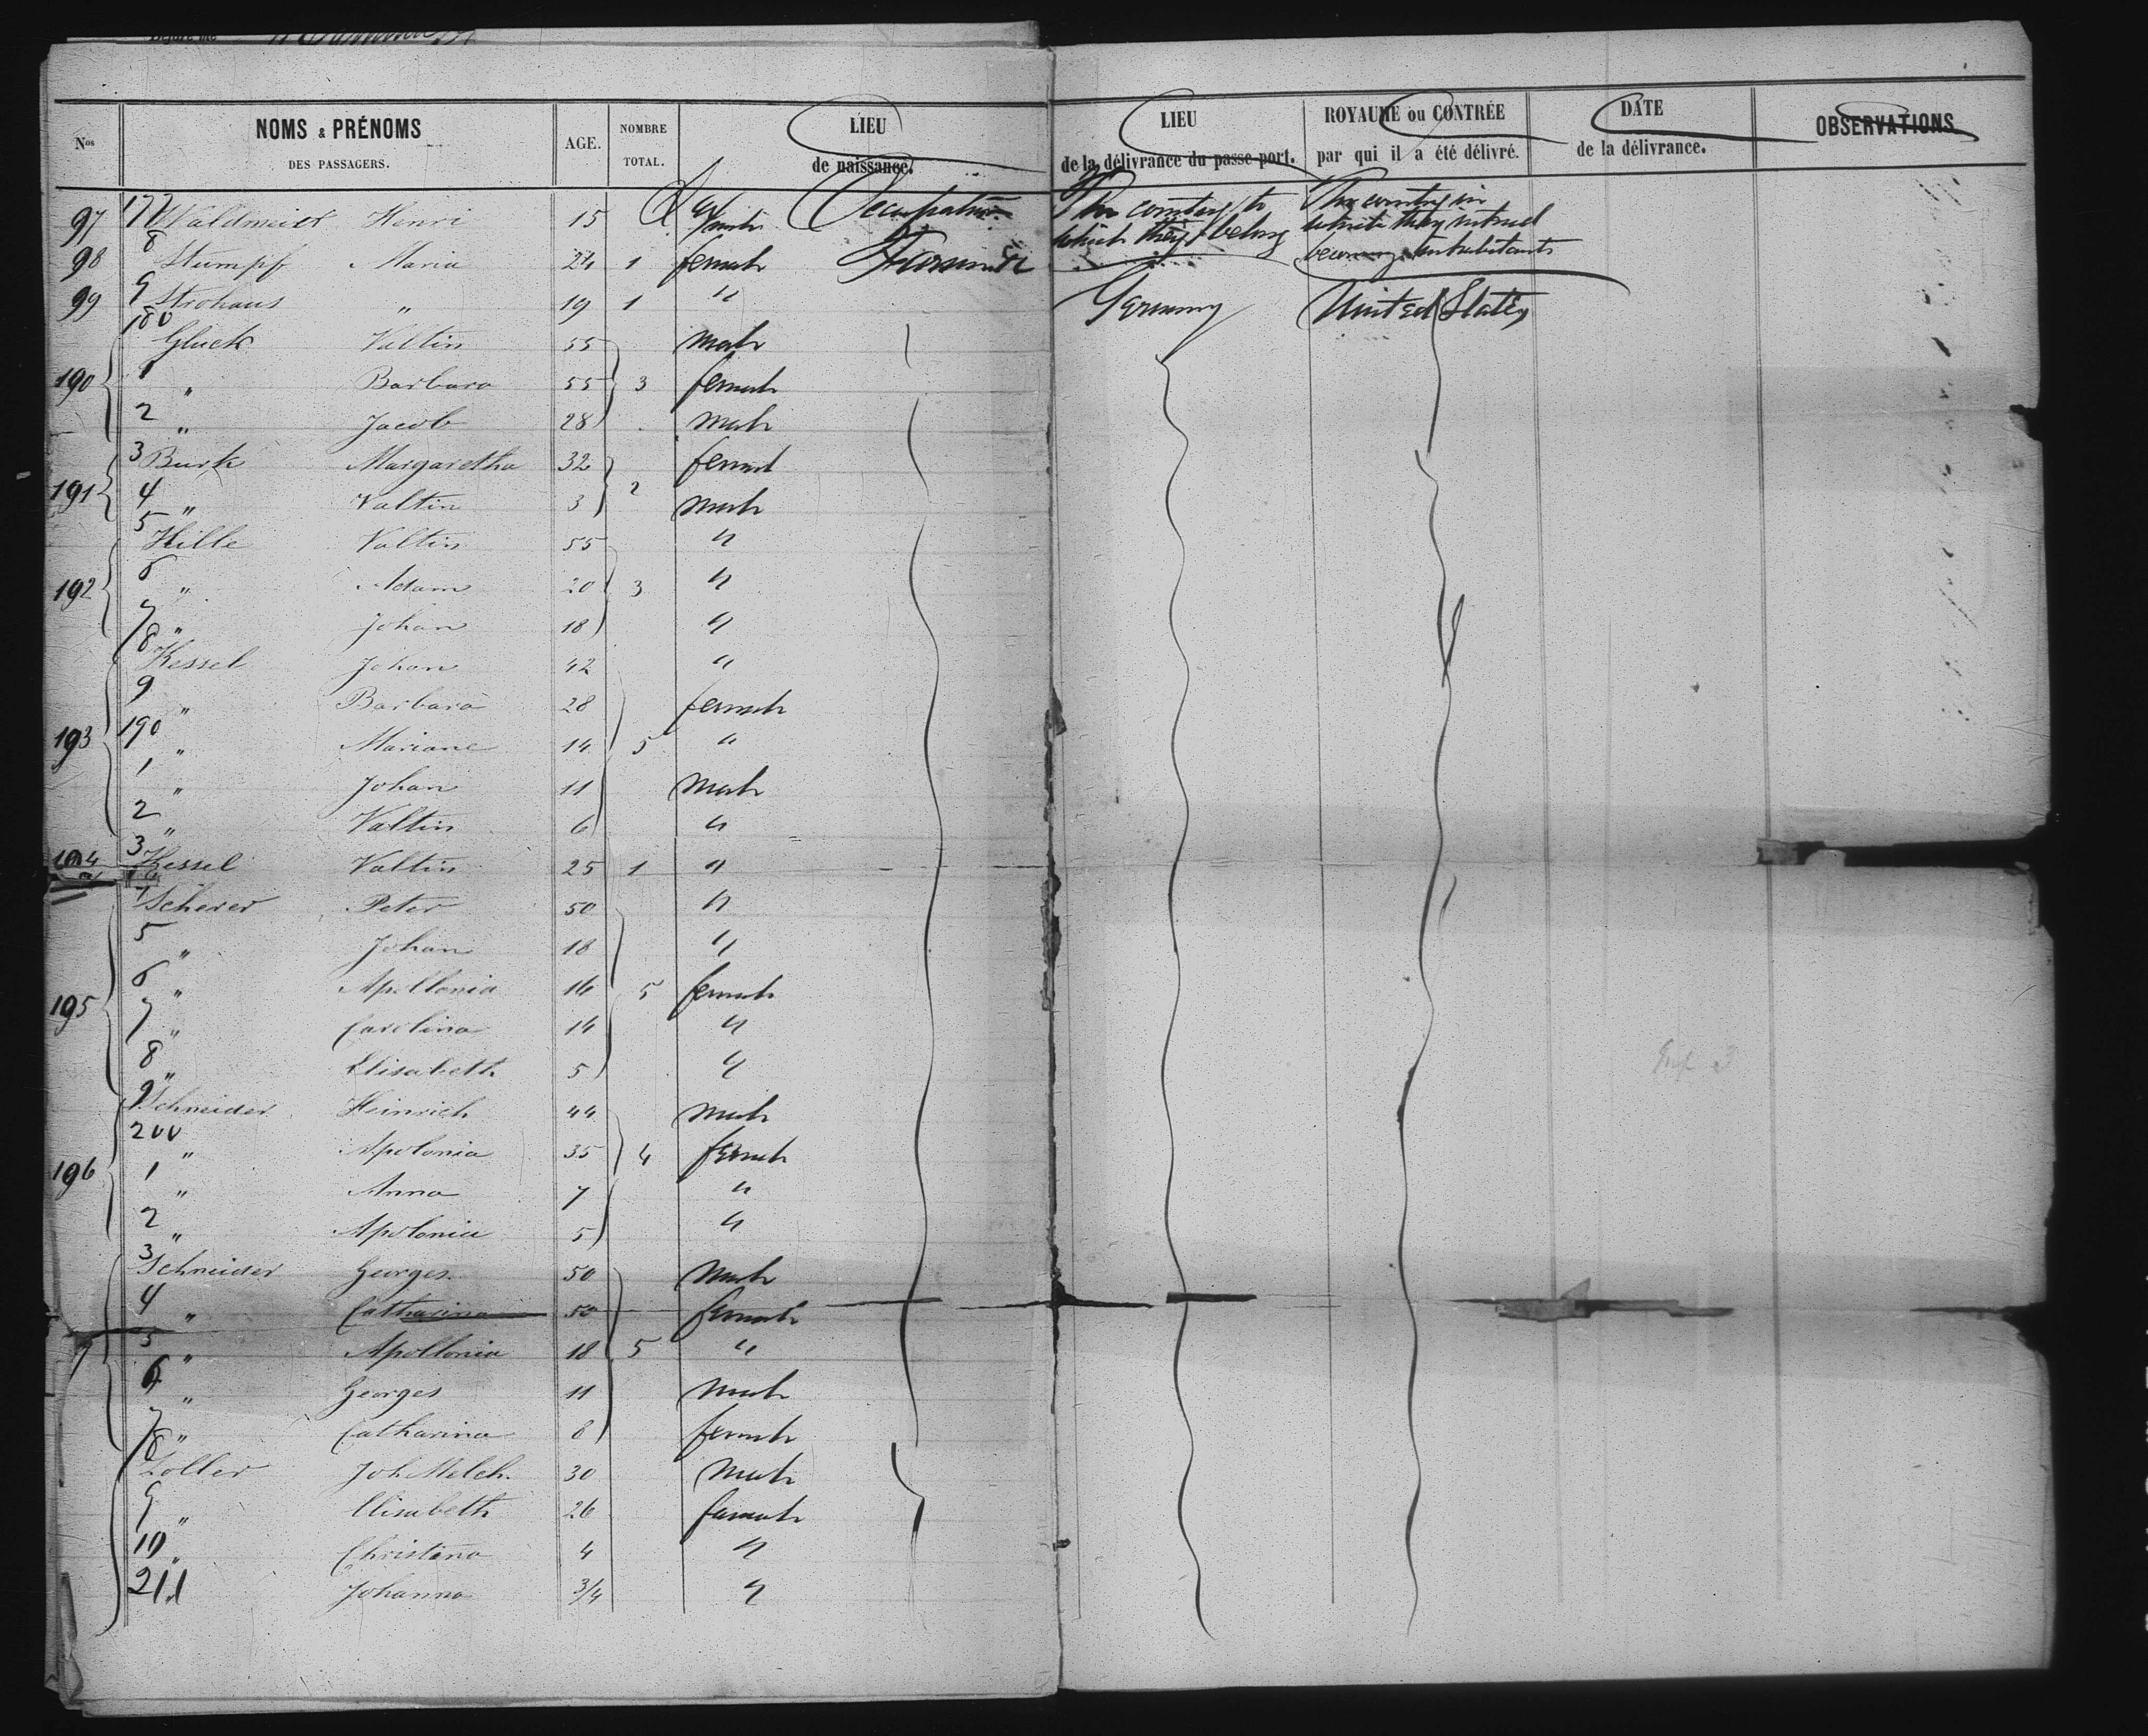 NOMS & PRÉNOMS LIEU LIEU ROYAUME ou CONTRÉE DATE OBSERVATIONS
Nos DES PASSAGERS. AGE. NOMBRE TOTAL. de naissance. de la délivrance du passe-port. par qui il a été délivré. de la délivrance.
Sex Occupation The country to which they belong The country in which they intend becoming inhabitants
97 177 Waldmeier Henri 15 male
98 8 Stumpf Maria 24 1 female
99 9 Strohaus " 19 1 " Germany United States
180 Gluck Valtin 55 male
190 1 " Barbara 55 3 female
2 " Jacob 28 male
3 Burk Margaretha 32 female
191 4 " Valtin 3 2 male
5 Hille Valtin 55 "
192 6 " Adam 20 3 "
7 " Johan 18 "
8 Kessel Johan 42 "
9 " Barbara 28 female
193 190 " Mariane 14 5 "
1 " Johan 11 male
2 " Valtin 6 "
194 3 Kessel Valtin 25 1 "
4 Scherer Peter 50 "
5 " Johan 18 "
6 " Apollonia 16 5 female
195 7 " Carolina 14 "
8 " Elisabeth 5 "
9 Schneider Heinrich 44 male
200 " Apolonia 35 4 female
196 1 " Anna 7 "
2 " Apolonia 5 "
3 Schneider Georges 50 male
4 " Catharina 50 female
5 " Apollonia 18 5 "
6 " Georges 11 male
7 " Catharina 8 female
8 Zoller Joh Melch. 30 male
9 " Elisabeth 26 female
10 " Christina 4 "
211 " Johanna 3/4 "